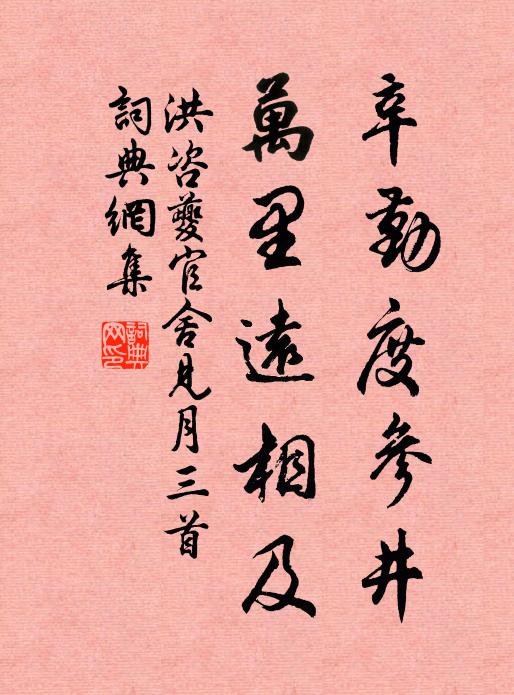 辛勤度參井
萬里遠相及
洪咨夔官舍見月三首
詞典網集
詞典网印